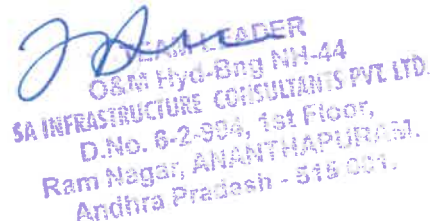 TEAM LEADER
O&M Hyd-Bng NH-44
SA INFRASTRUCTURE CONSULTANTS PVT LTD.
D.No. 6-2-994, 1st Floor,
Ram Nagar, ANANTHAPURAM.
Andhra Pradesh - 515 001.